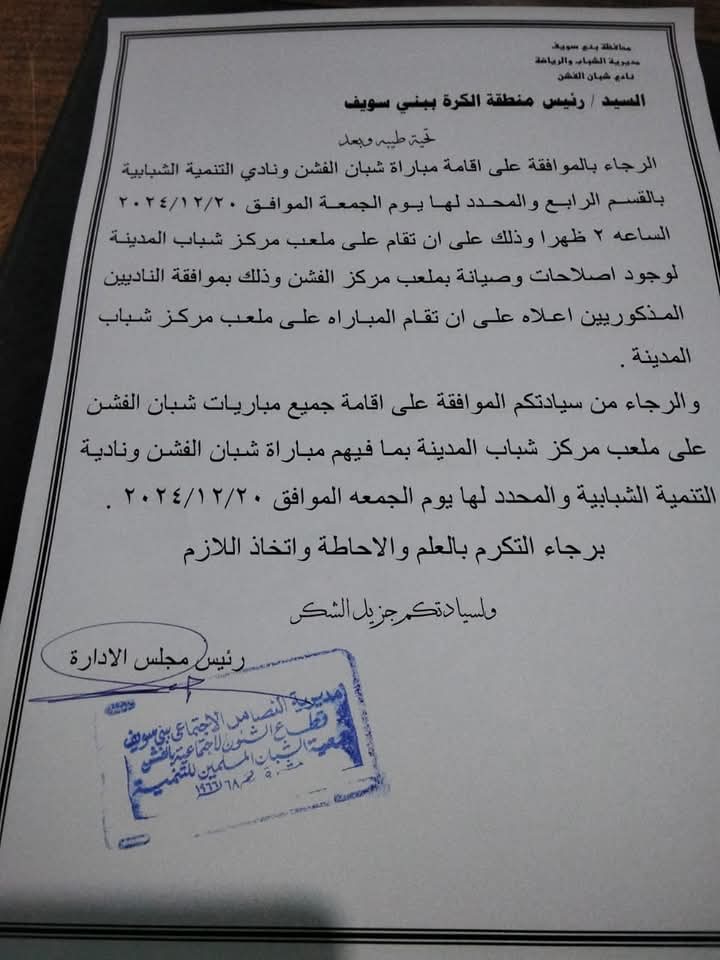 محافظة بني سويف
مديرية الشباب والرياضة
نادي شبان الفشن
السيد / رئيس منطقة الكرة ببني سويف
تحية طيبه وبعد
الرجاء بالموافقة على اقامة مباراة شبان الفشن ونادي التنمية الشبابية
بالقسم الرابع والمحدد لها يوم الجمعة الموافق ٢٠٢٤/١٢/٢٠
الساعه ٢ ظهرا وذلك على ان تقام على ملعب مركز شباب المدينة
لوجود اصلاحات وصيانة بملعب مركز الفشن وذلك بموافقة الناديين
المذكوريين اعلاه على ان تقام المباراه على ملعب مركز شباب
المدينة .
والرجاء من سيادتكم الموافقة على اقامة جميع مباريات شبان الفشن
على ملعب مركز شباب المدينة بما فيهم مباراة شبان الفشن ونادية
التنمية الشبابية والمحدد لها يوم الجمعه الموافق ٢٠٢٤/١٢/٢٠ .
برجاء التكرم بالعلم والاحاطة واتخاذ اللازم
ولسيادتكم جزيل الشكر
رئيس مجلس الادارة
مديرية التضامن الاجتماعى ببنى سويف
قطاع الشئون الاجتماعية بالفشن
جمعية الشبان المسلمين للتنمية